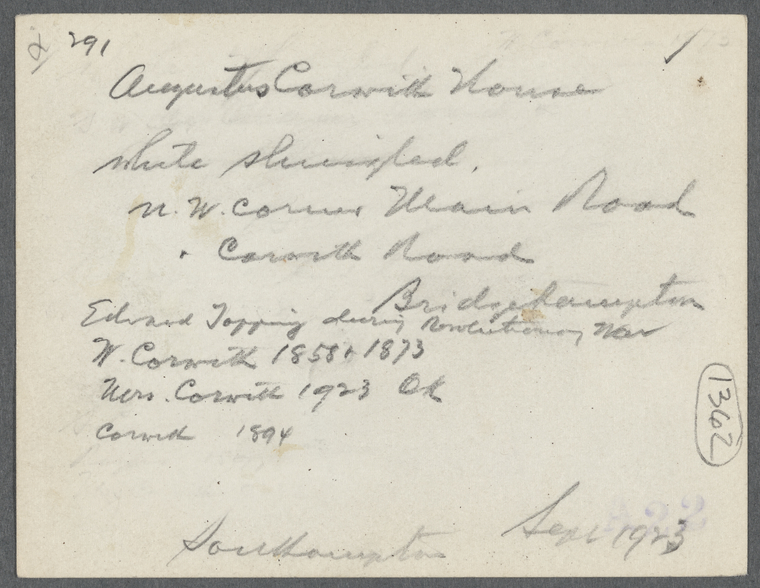 291
Augustus Corwith House
white shingled.
N.W. corner Main Road
+ Corwith Road
Bridgehampton
Edward Topping during Revolutionary War
W. Corwith 1858 + 1873
Mrs. Corwith 1923 OK
Corwith 1894
1362
Southampton Sept 1923